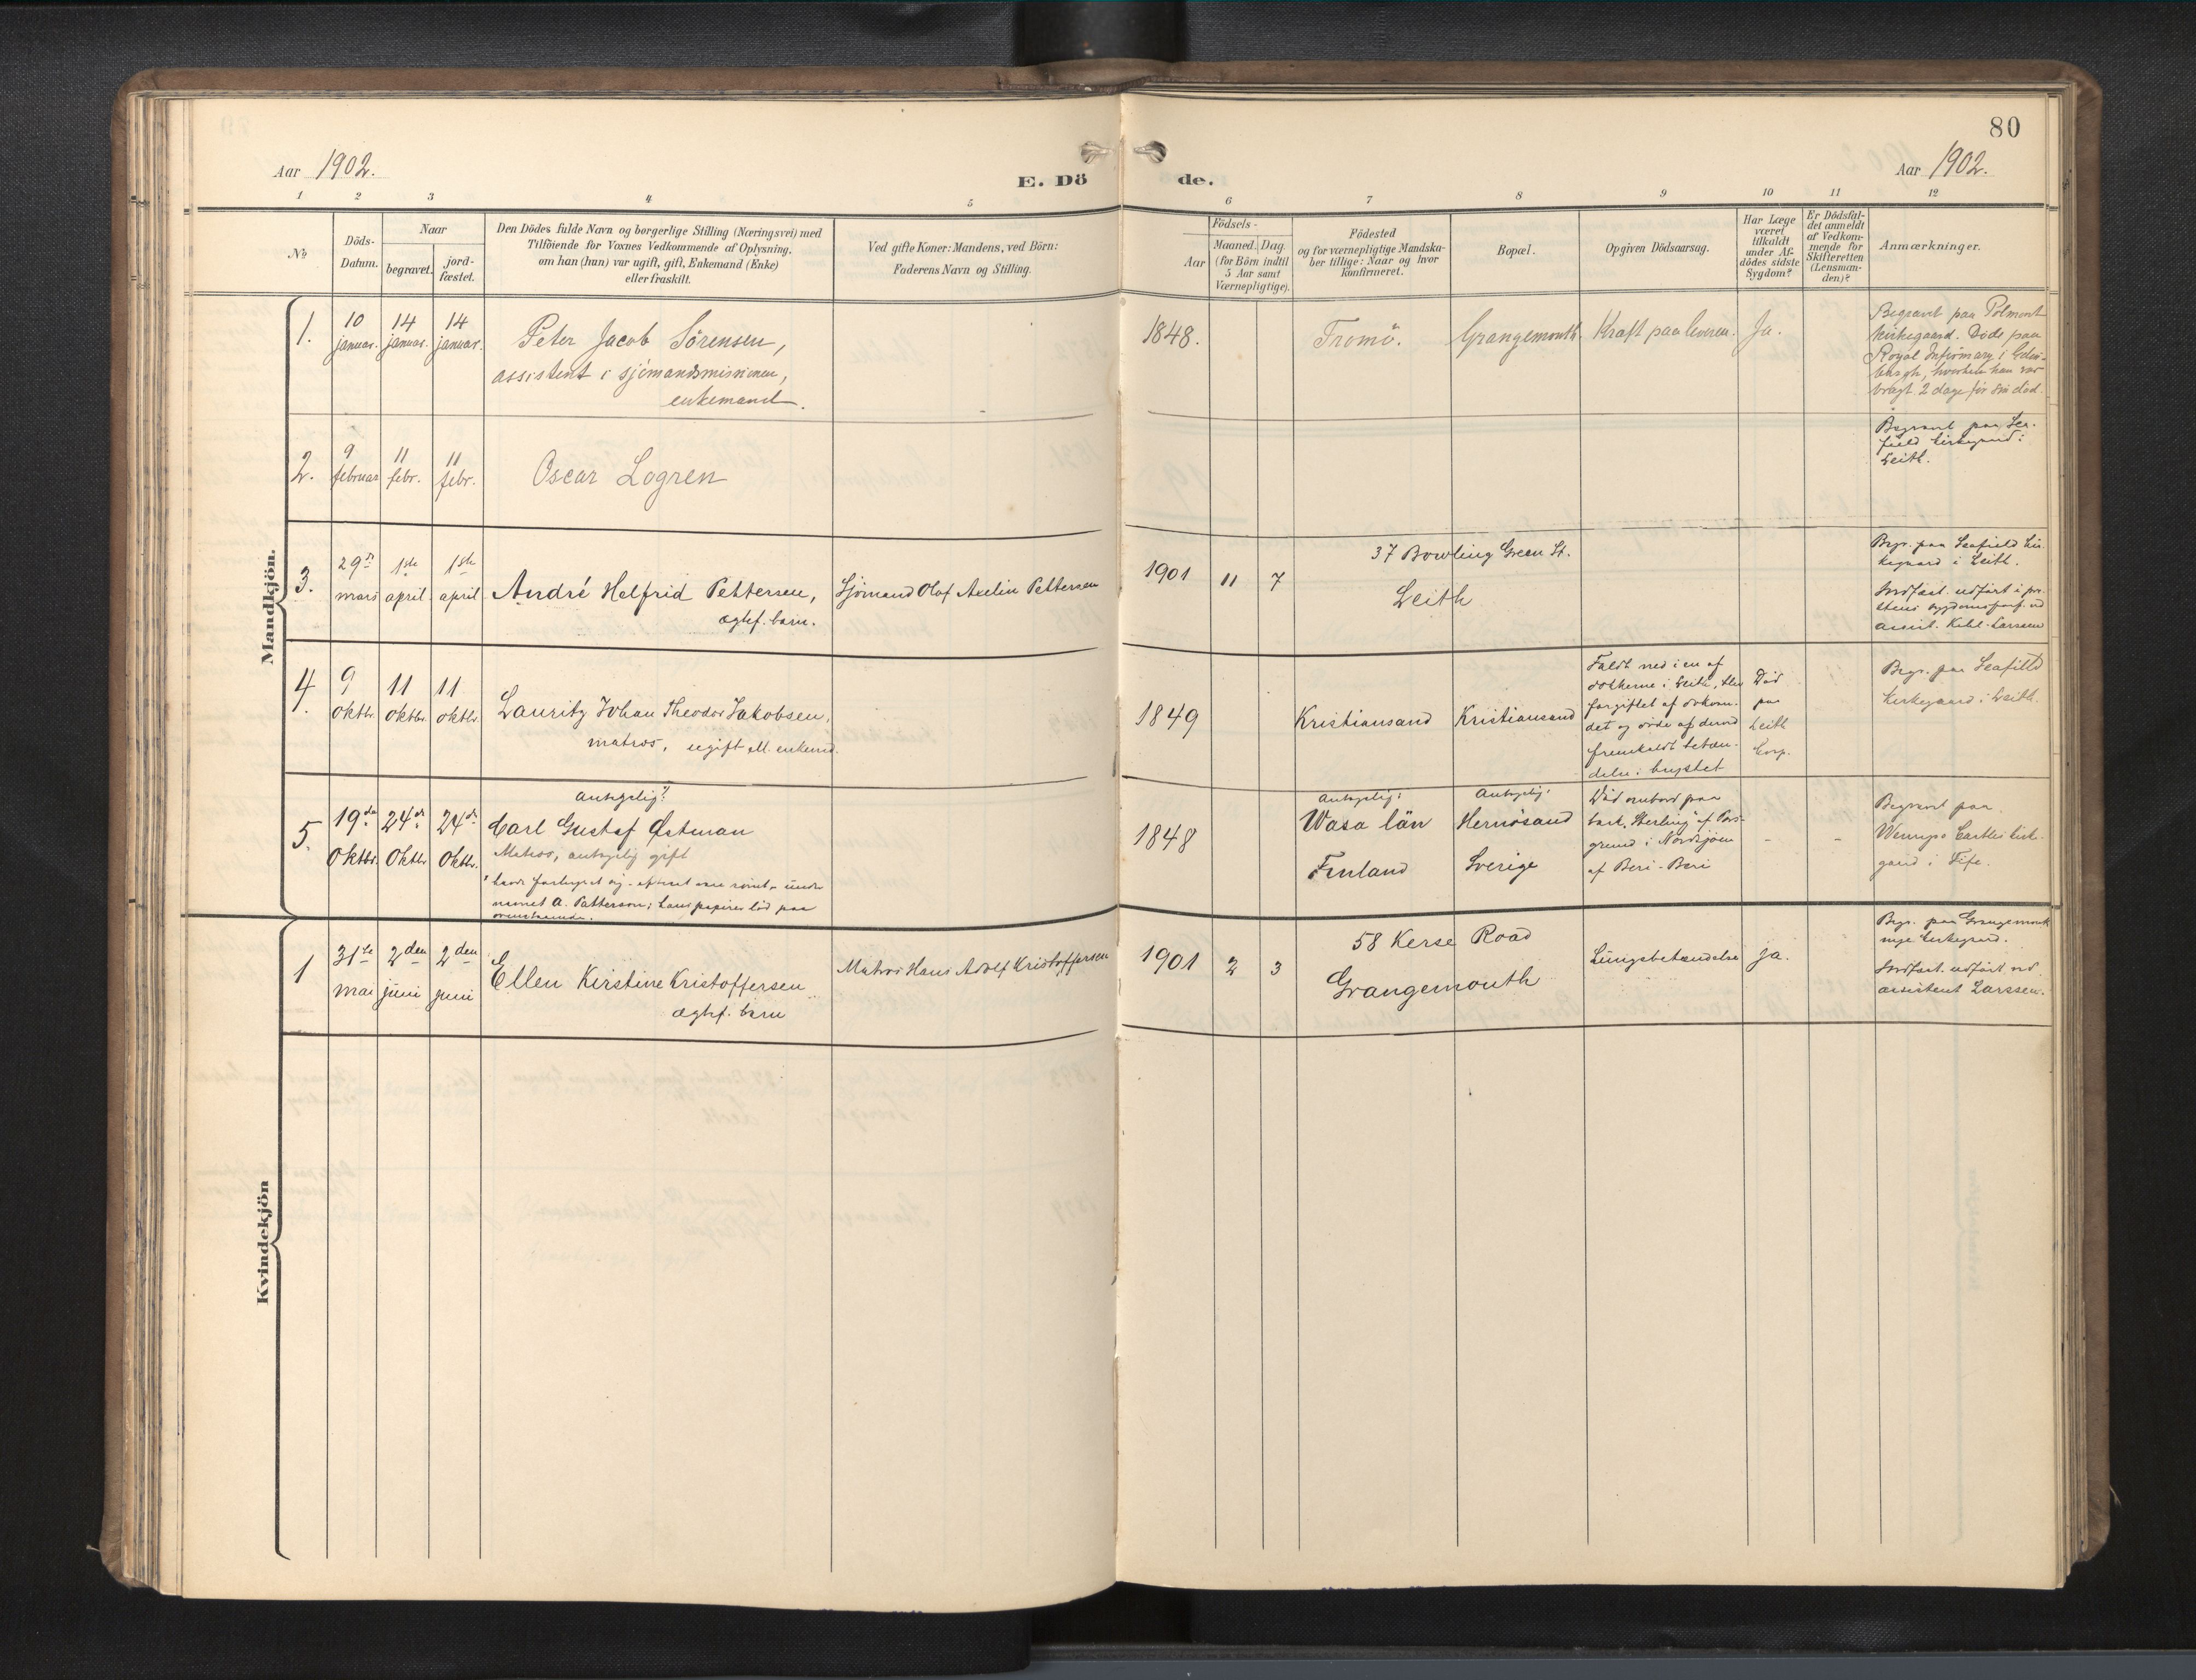 80
Aar 1902.
Aar 1902.
E. Dö de.
1 2 3 4 5 6 7 8 9 10 11 12
№
Döds-
Datum.
Naar
begravet.
jord-
fæstet.
Den Dödes fulde Navn og borgerlige Stilling (Næringsvei) med
Tilföiende for Voxnes Vedkommende af Oplysning.
om han (hun) var ugift, gift, Enkemand (Enke)
eller fraskilt.
Ved gifte Koner: Mandens, ved Börn:
Faderens Navn og Stilling.
Födsels-
Aar
Maaned. Dag.
(for Börn indtil
5 Aar samt
Værnepligtige).
Födested
og for værnepligtige Mandska-
ber tillige: Naar og hvor
konfirmeret.
Bopæl.
Opgiven Dödsaarsag.
Har Læge
været
tilkaldt
under Af-
dödes sidste
Sygdom?
Er Dödsfal-
det anmeldt
af Vedkom-
mende for
Skifteretten
(Lensman-
den)?
Anmærkninger.
Mandkjön.
1.
10
januar.
14
januar.
14
januar.
Peter Jacob Sörensen,
assistent i sjömandsmissionen,
enkemand.
1848.
Tromö.
Grangemouth
Kræft paa leveren.
Ja.
Begravet paa Polmont
kirkegaard. Döde paa
Royal Infirmary i Edin-
burgh, hvorhen han var
bragt 2 dage før sin død.
2.
9
februar
11
febr.
11
febr.
Oscar Logren
Begravet paa Sea-
field kirkegaard i
Leith.
3.
29de
mars
1ste
april
1ste
april
André Helfrid Pettersen,
ægtef. barn.
Sjömand Olaf Axelin Pettersen
1901 11 7
37 Bowling Green St.
Leith
Begr. paa Seafield kir-
kegaard i Leith.
Jordfæst. udført i pre-
stens sygdomsforf. ved
assist. Kihl-Larssen
4.
9
oktbr.
11
oktbr.
11
oktbr.
Lauritz Johan Theodor Jakobsen,
matros, ugift ell. enkemd.
1849
Kristiansand
Kristiansand
Faldt ned i en af
dokkerne i Leith, blev
forgiftet af dokvan-
det og döde af derved
fremkaldt betæn-
delse i brystet
Död
paa
Leith
Hosp.
Begr. paa Seafield
Kirkegaard i Leith.
5.
19de
Oktbr.
24de
Oktbr.
24de
Oktbr.
Antagelig:
Carl Gustaf Østman
Matros, antagelig gift
havde forhyret sig - efter at være rømt - under
navnet A. Patterson; hans papirer lød paa
ovenstaaende.
1848
Antagelig:
Wasa län
Finland
Antagelig:
Hernösand
Sverige
Död ombord paa
bark "Sterling" af Pors-
grund i Nordsjøen
af Beri-Beri
-
-
Begravet paa
Wemyss Castle kirke-
gaard i Fife.
Kvindekjön
1
31te
mai
2den
juni
2den
juni
Ellen Kirstine Kristoffersen
ægtef. barn
Matros Hans Adolf Kristoffersen
1901 2 3
58 Kerse Road
Grangemouth
Lungebetændelse
ja.
Begr. paa Grangemouth
nye kirkegaard.
Jordfæst. udført ved
assistent Larssen.